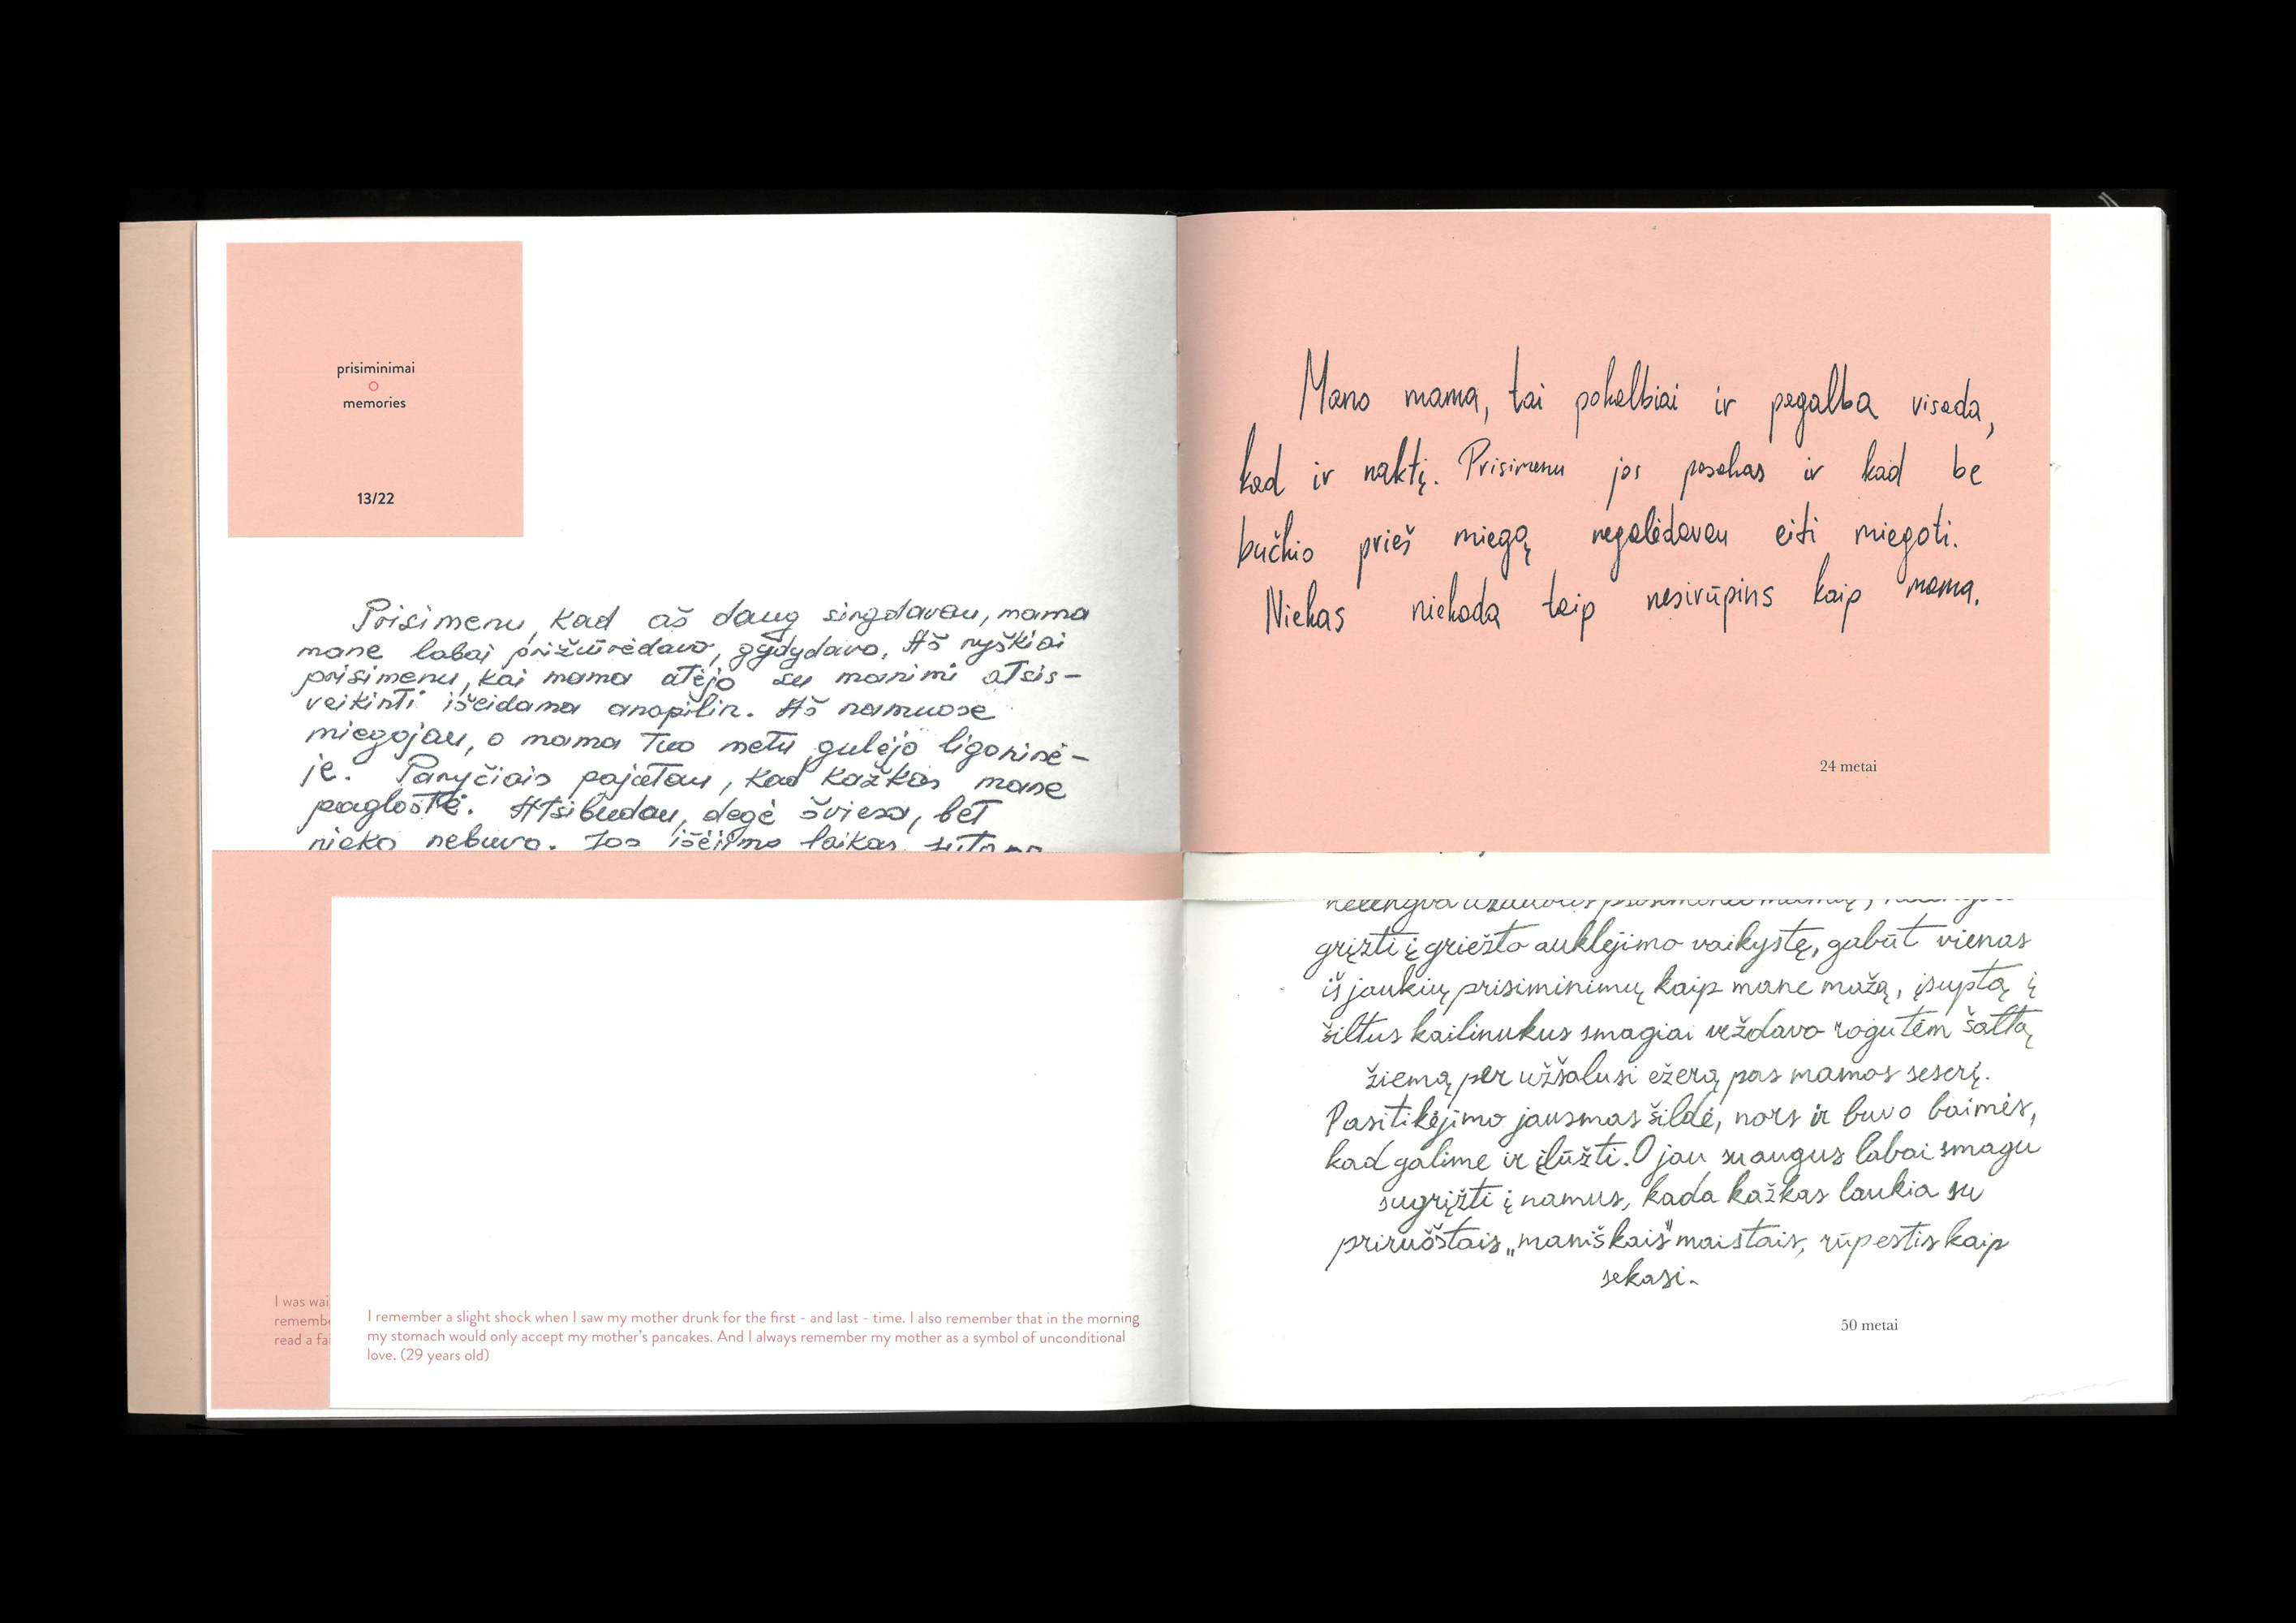 prisiminimai
memories
13/22
Prisimenu, kad aš daug sirgdavau, mama
mane labai prižiūrėdavo, gydydavo. Aš ryškiai
prisimenu, kai mama atėjo su manimi atsis-
veikinti išeidama anapilin. Aš namuose
miegojau, o mama tuo metu gulėjo ligoninė-
je. Paryčiais pajutau, kad kažkas mane
paglostė. Atsibudau, degė šviesa, bet
nieko nebuvo. Jos išėjimo laikas
I was wai
rememb
read a fa
I remember a slight shock when I saw my mother drunk for the first - and last - time. I also remember that in the morning
my stomach would only accept my mother's pancakes. And I always remember my mother as a symbol of unconditional
love. (29 years old)
Mano mama, tai pokalbiai ir pagalba visada,
kad ir naktį. Prisimenu jos pasakas ir kad be
bučkio prieš miegą negalėdavau eiti miegoti.
Niekas niekada taip nesirūpins kaip mama.
24 metai
grįžti į griežto auklėjimo vaikystę, gabūt vienas
iš jaukių prisiminimų kaip mane mažą, įsuptą į
šiltus kailinukus smagiai veždavo rogutėm šaltą
žiemą per užšalusi ežerą pas mamos seserį.
Pasitikėjimo jausmas šildė, nors ir buvo baimės,
kad galime ir įlūžti. O jau suaugus labai smagu
sugrįžti į namus, kada kažkas laukia su
priruoštais „maniškais" maistais, rūpestis kaip
sekasi.
50 metai